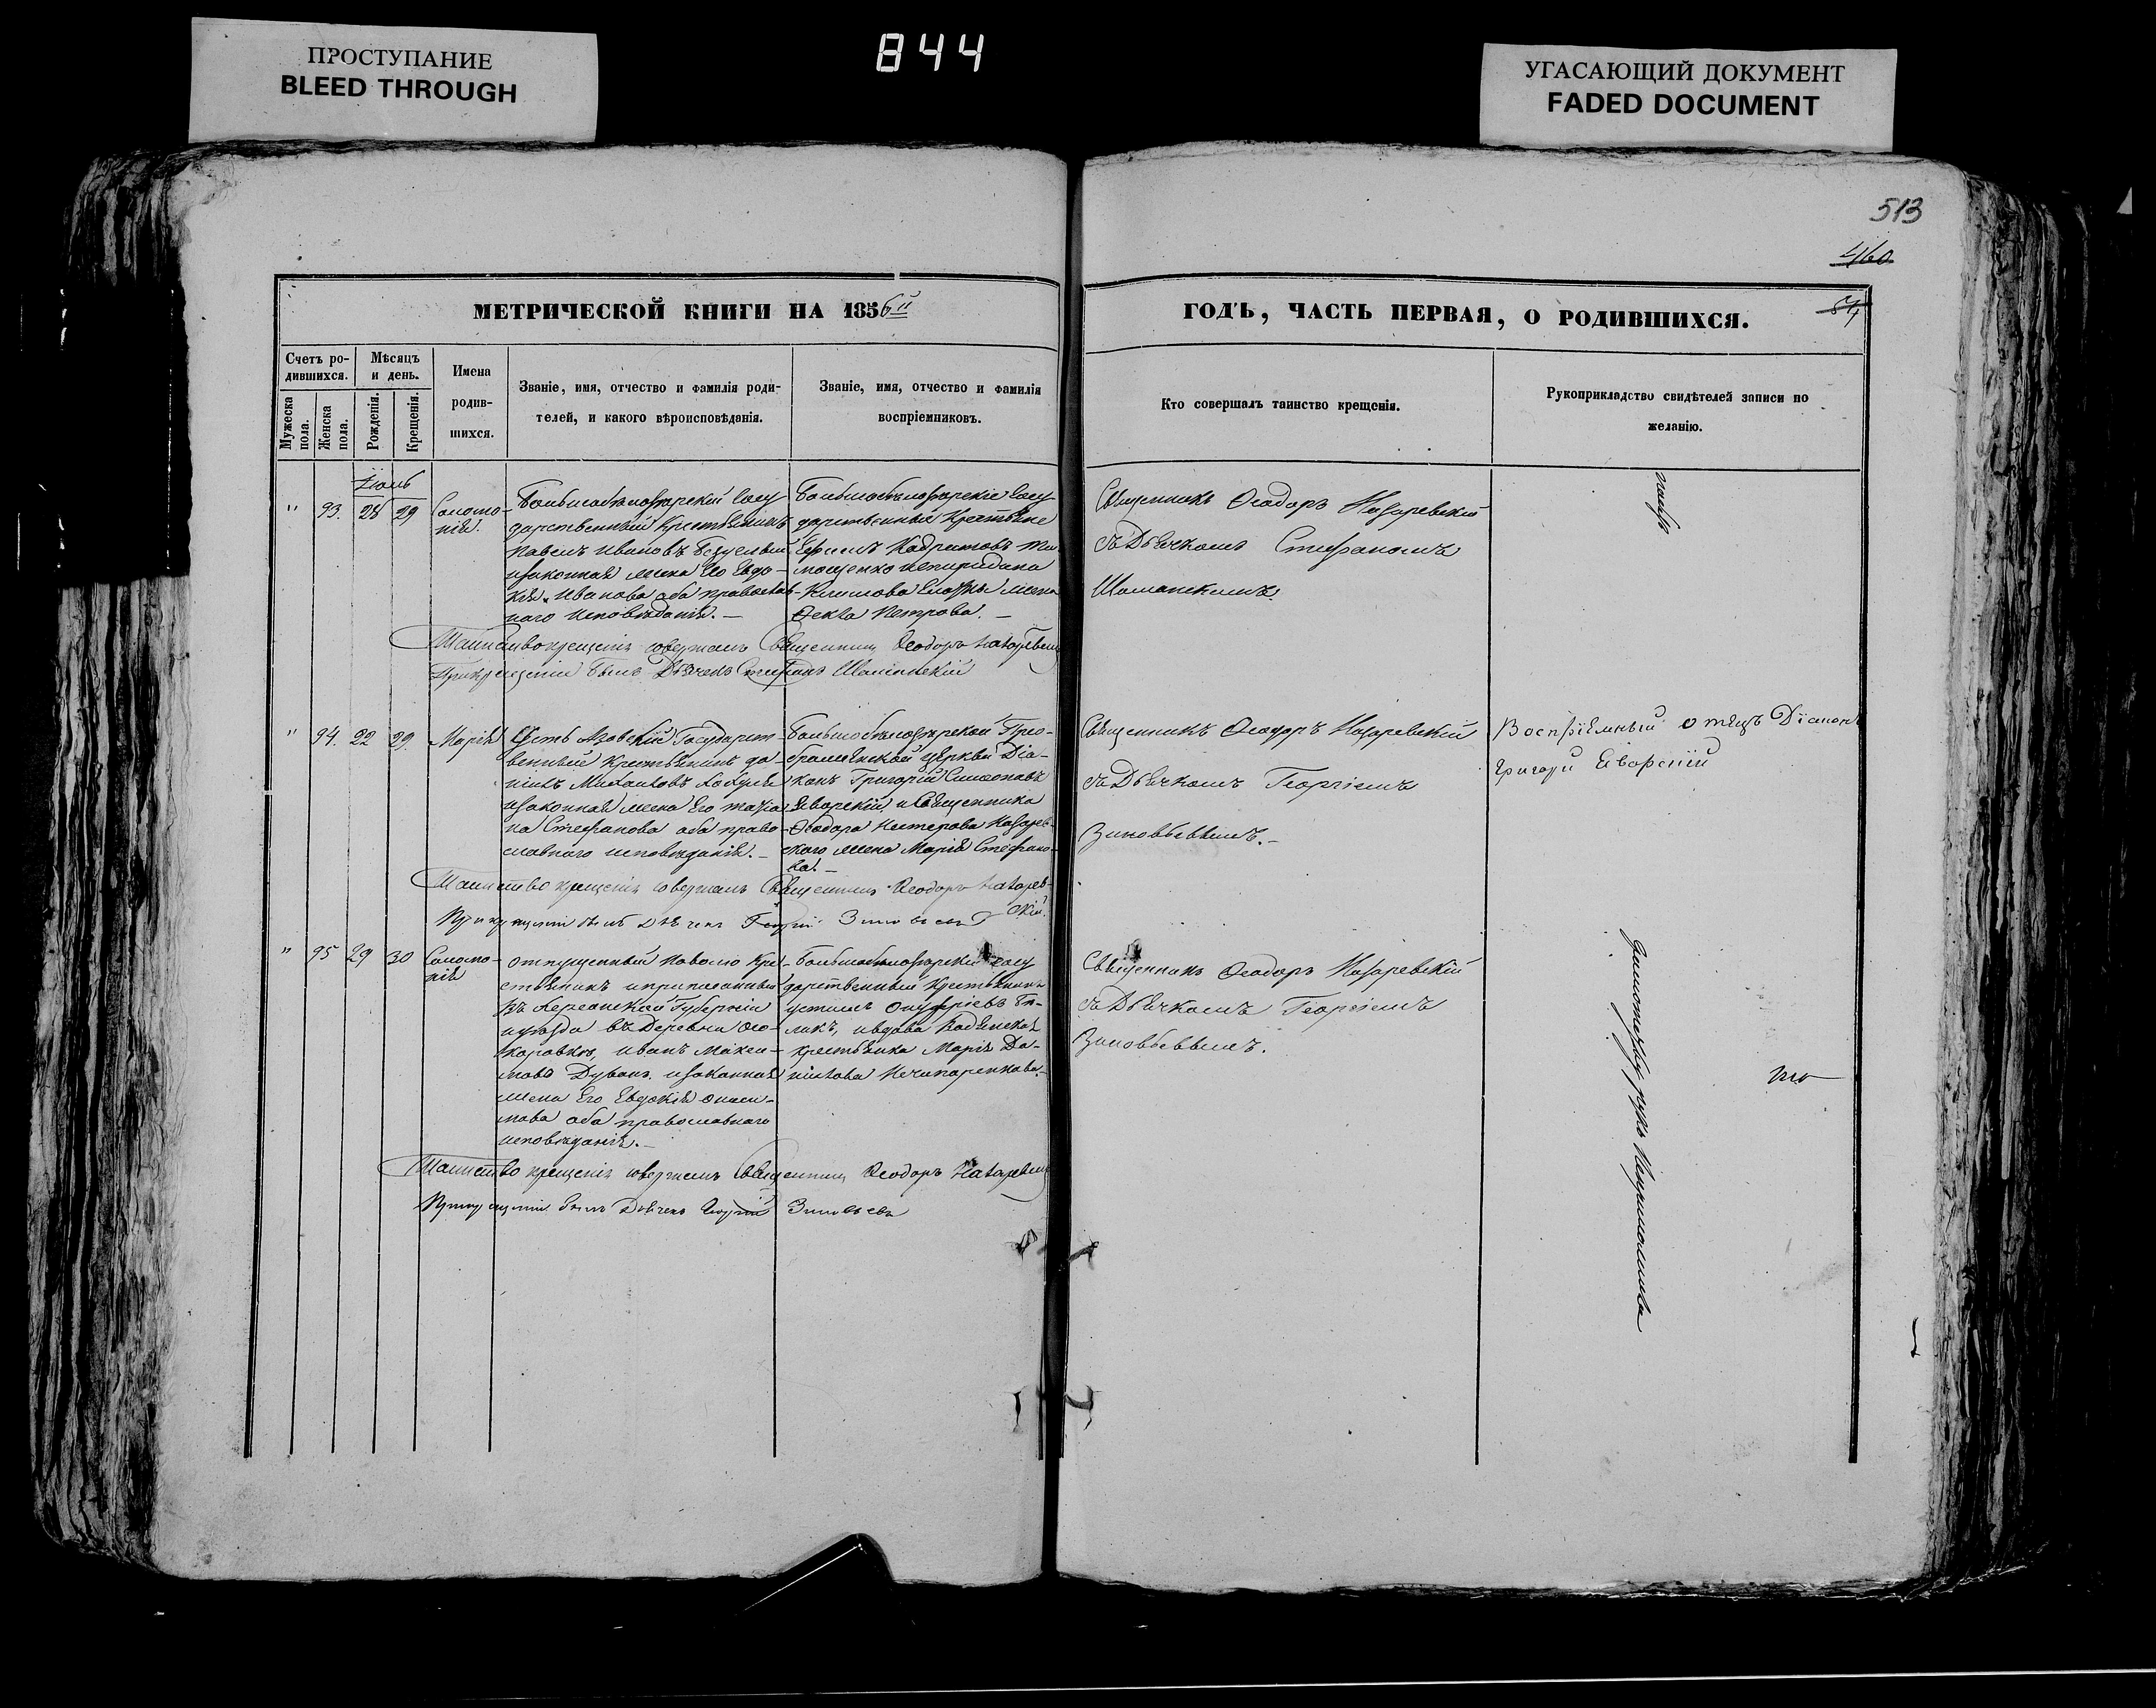 ПРОСТУПАНИЕ
BLEED THROUGH
844
УГАСАЮЩИЙ ДОКУМЕНТ
FADED DOCUMENT
513
460
МЕТРИЧЕСКОЙ КНИГИ НА 1856
ГОДЪ, ЧАСТЬ ПЕРВАЯ, О РОДИВШИХСЯ.
Счетъ ро-
дившихся.
Мужеска
пола.
Женска
пола.
Мѣсяцъ
и день.
Рожденія.
Крещенія.
Имена
родив-
шихся.
Званіе, имя, отчество и фамилія роди-
телей, и какого вѣроисповѣданія.
Званіе, имя, отчество и фамилія
воспріемниковъ.
Кто совершалъ таинство крещенія.
Рукоприкладство свидѣтелей записи по
желанію.
Іюль
" 93. 28 29
Соломо-
нія.
Большебѣлозерскій Госу
дарственный крестьянинъ
Павелъ Ивановъ
изаконная жена Его Евдо-
кія Иванова оба православ-
наго исповѣданія. —
Большебѣлозерскіе Госу
дарственный Крестьяне
Ефимъ
Климова жена
Ѳекла Петрова. —
Священникъ Ѳеодоръ Назаревскій
съ Дьячкомъ Стефаномъ
Шаманскимъ.
Таинство крещенія совершалъ Священникъ Ѳеодоръ Назаревскій
При крещеніи былъ Дьячекъ Стефанъ Шаманскій
" 94. 22 29
Марія
Усть Азовскій Государст-
венный Крестьянинъ Да-
ніилъ Михаиловъ
изаконная жена Его Татіа
на Стефанова оба право-
славнаго исповѣданія. —
Большебѣлозерской Прео-
браженской церкви Діа-
конъ Григорій Симеоновъ
Яворскій и Священника
Ѳеодора Нестерова Назарев-
скаго жена Марія Стефано-
ва. —
Священникъ Ѳеодоръ Назаревскій
съ Дьячкомъ Георгіемъ
Зиновьевымъ. —
Воспріѣмный отецъ Діаконъ
Григори Еіворскій
Таинство крещенія совершалъ Священникъ Ѳеодоръ Назарев-
скій.
При крещеніи былъ Дьячекъ Георгій Зиновьевъ
" 95 29 30
Соломо-
нія
отпущенный наволю Кре-
стьянинъ и приписанный
въ Херсонской Губерніи
и уѣзда въ Деревни
Иванъ Макси-
мовъ Дубанъ изаконная
жена Его Евдокія
оба православнаго
исповѣданія. —
Большебѣлозерскій Госу
дарственный Крестьянинъ
Устимъ Онуфріевъ
и вдова
крестьянка Марія Да-
нилова Нечипоренкова. —
Священникъ Ѳеодоръ Назаревскій
съ Дьячкомъ Георгіемъ
Зиновьевымъ.
Таинство крещенія совершалъ Священникъ Ѳеодоръ Назаревскій
При крещеніи былъ Дьячекъ Георгій Зиновьевъ